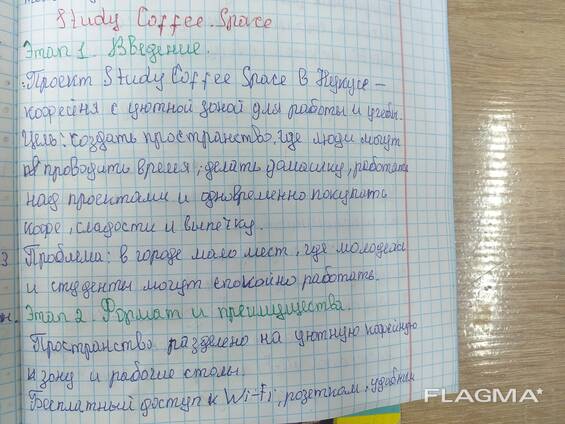 Study Coffee Space
Этап 1. Введение.
Проект Study Coffee Space в Нукусе –
кофейня с уютной зоной для работы и учебы.
Цель: создать пространство, где люди могут
проводить время, делать домашку, работать
над проектами и одновременно покупать
кофе, сладости и выпечку.
3 Проблема: в городе мало мест, где молодежь
и студенты могут спокойно работать.
н. Этап 2. Формат и преимущества.
Пространство разделено на уютную кофейную
зону и рабочие столы.
Бесплатный доступ к Wi-Fi, розеткам,
FLAGMA*